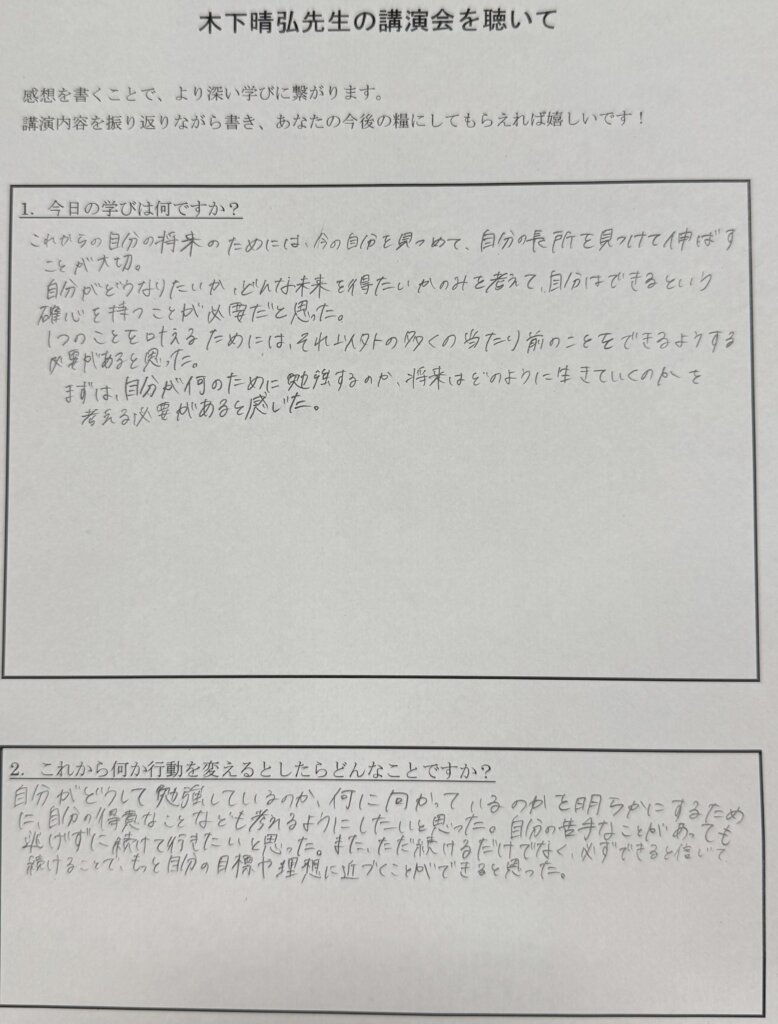 木下晴弘先生の講演会を聴いて
感想を書くことで、より深い学びに繋がります。
講演内容を振り返りながら書き、あなたの今後の糧にしてもらえれば嬉しいです！
1. 今日の学びは何ですか？
これからの自分の将来のためには、今の自分を見つめて、自分の長所を見つけて伸ばす
ことが大切。
自分がどうなりたいか、どんな未来を得たいかのみを考えて、自分はできるという
確心を持つことが必要だと思った。
1つのことを叶えるためには、それ以外の多くの当たり前のことをできるようする
必要があると思った。
まずは、自分が何のために勉強するのか、将来はどのように生きていくのかを
考える必要があると感じた。
2. これから何か行動を変えるとしたらどんなことですか？
自分がどうして勉強しているのか、何に向かっているのかを明らかにするため
に、自分の得意なことなども考れるようにしたいと思った。自分の苦手なことがあっても
逃げずに続けて行きたいと思った。また、ただ続けるだけでなく、必ずできると信じて
続けることで、もっと自分の目標や理想に近づくことができると思った。